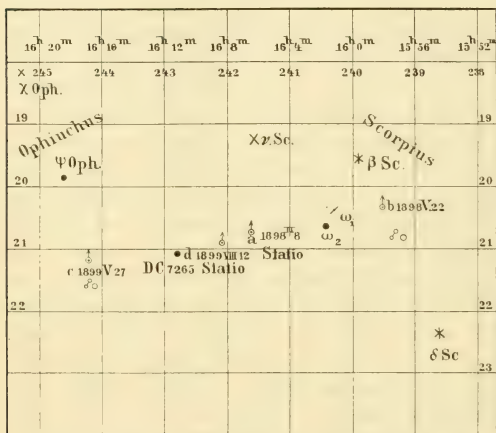 16h 20m 16h 16m 16h 12m 16h 8m 16h 4m 16h 0m 15h 56m 15h 52m
245 244 243 242 241 240 239 238
χ Oph.
19 19
Ophiuchus Scorpius
ν. Sc.
β Sc.
ψ Oph.
20 20
b 1898 V. 22
ω1
ω2
a 1898 III 8
Statio
21 21
d 1899 VIII 12
c 1899 V 27
DC 7265 Statio
22 22
δ Sc
23